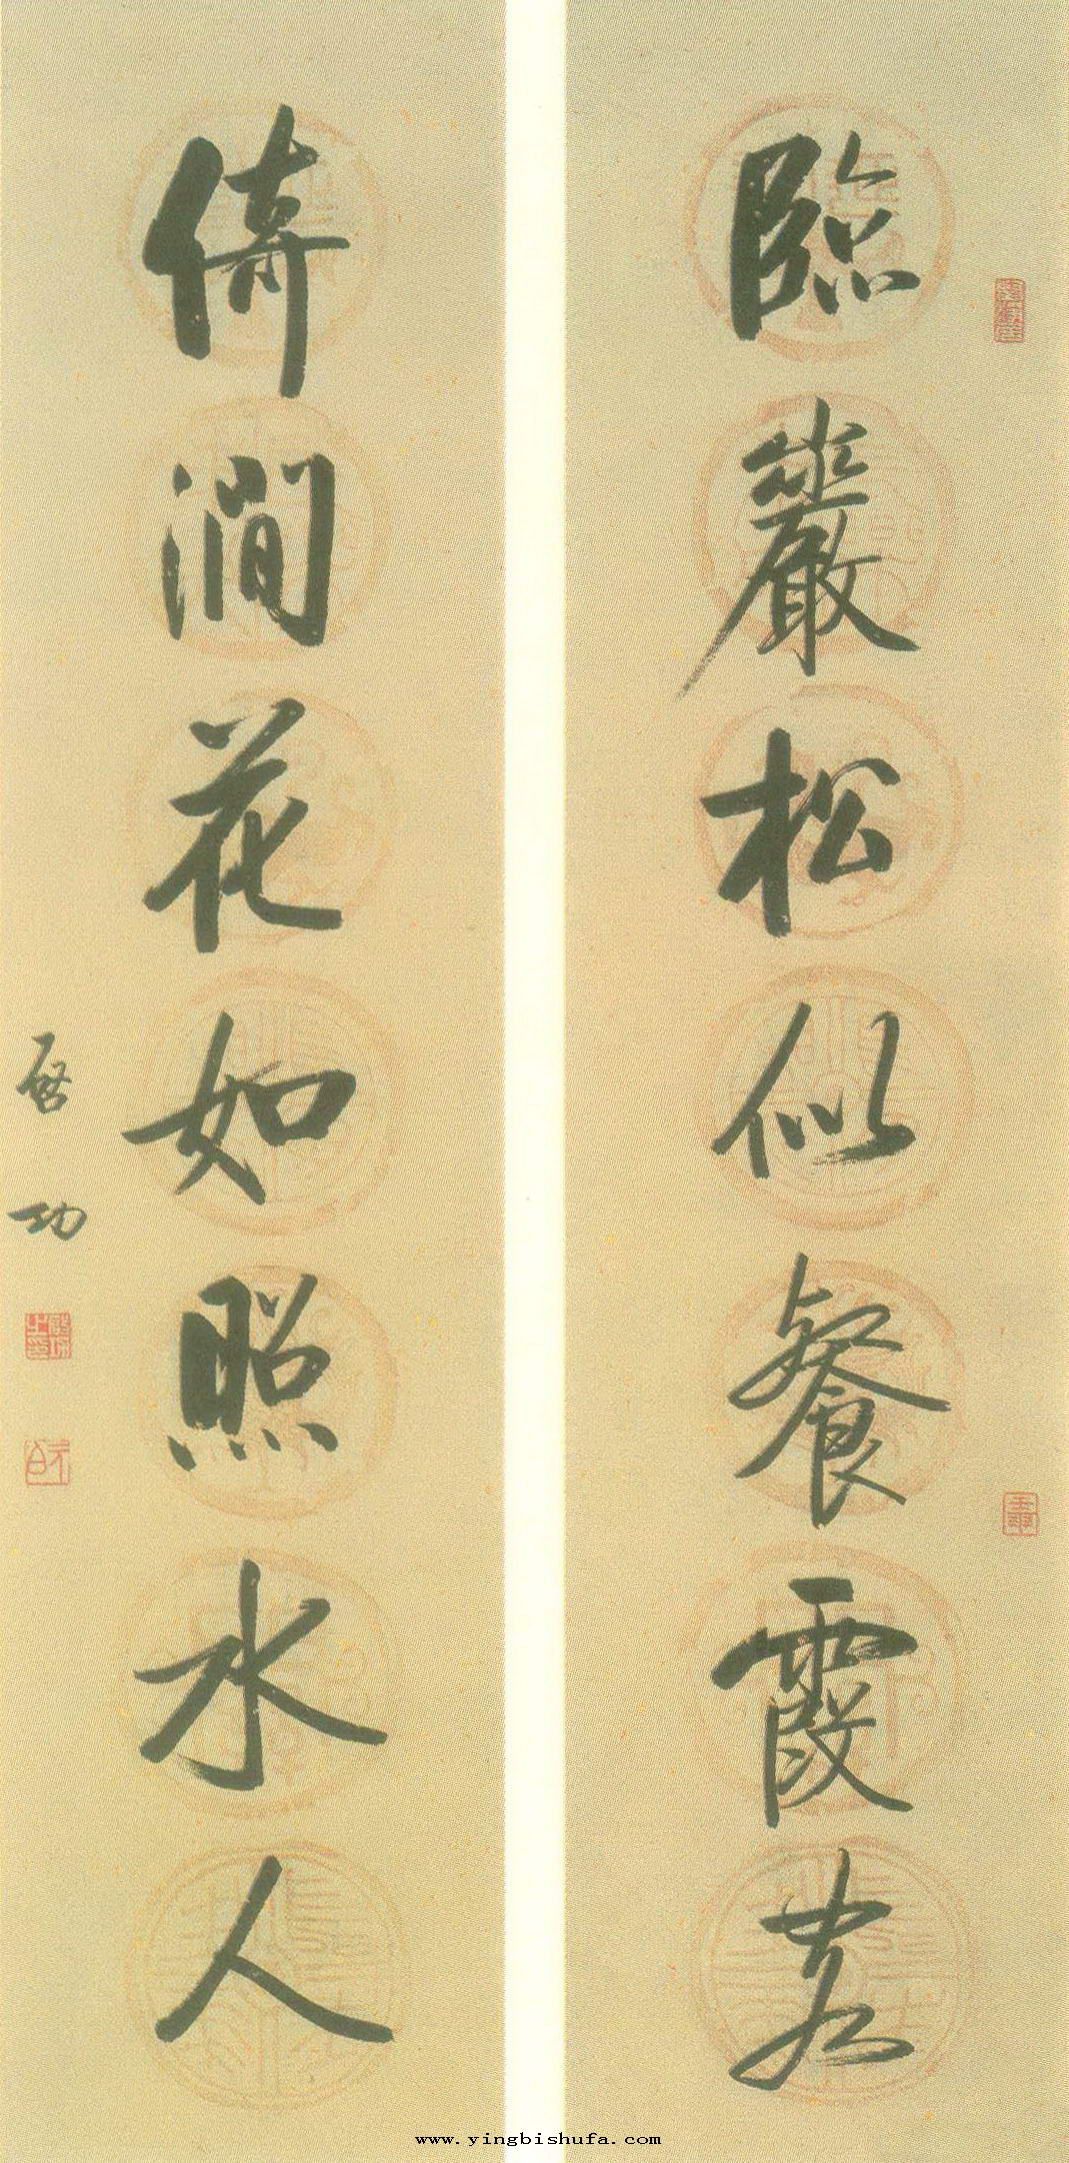 臨巖松似餐霞
倚澗花如照水人
啓功
啓功之印
元白
www.yingbishufa.com